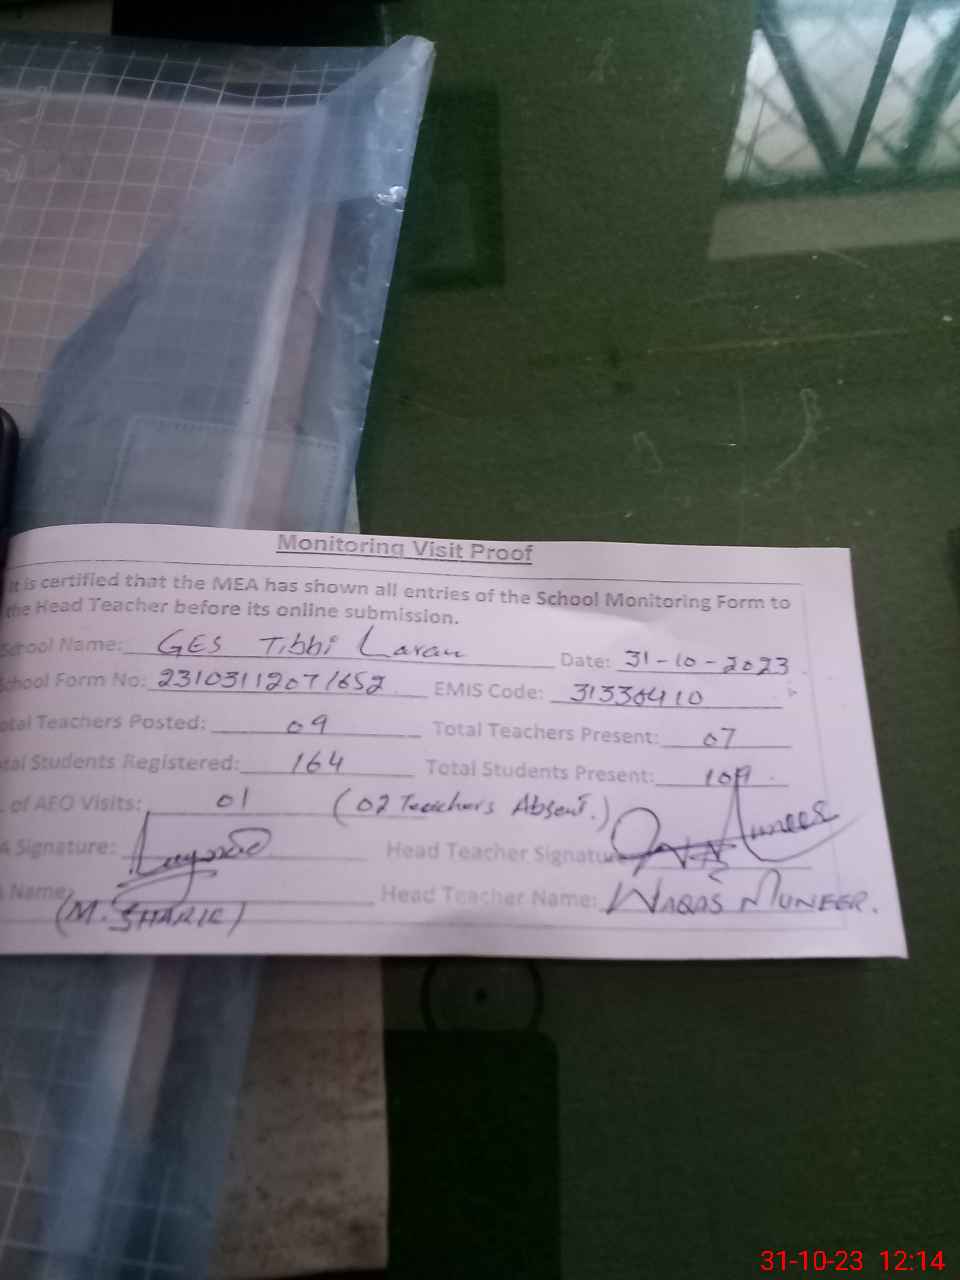 Monitoring Visit Proof
It is certified that the MEA has shown all entries of the School Monitoring Form to
the Head Teacher before its online submission.
School Name: GES Tibbi Laran Date: 31-10-2023
School Form No: 23103112071652 EMIS Code: 31330410
otal Teachers Posted: 09 Total Teachers Present: 07
tal Students Registered: 164 Total Students Present: 109
. of AEO Visits: 01 (02 Teachers Absent.)
A Signature: Head Teacher Signature Muneer
Name: (M. SHARIF) Head Teacher Name: WAQAS MUNEER.
31-10-23 12:14